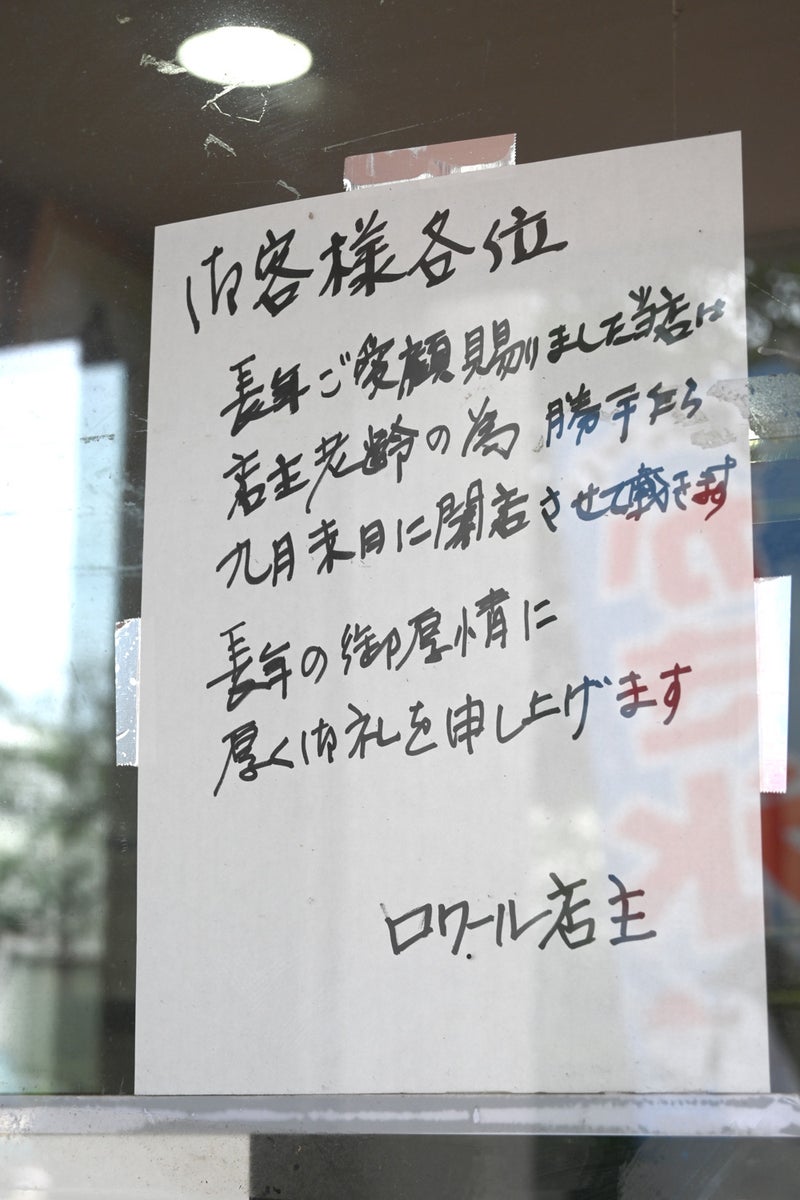 御客様各位
長年ご愛顧賜りました当店は
店主老齢の為 勝手乍ら
九月末日に閉店させて戴きます
長年の御厚情に
厚く御礼を申し上げます
ロワール店主